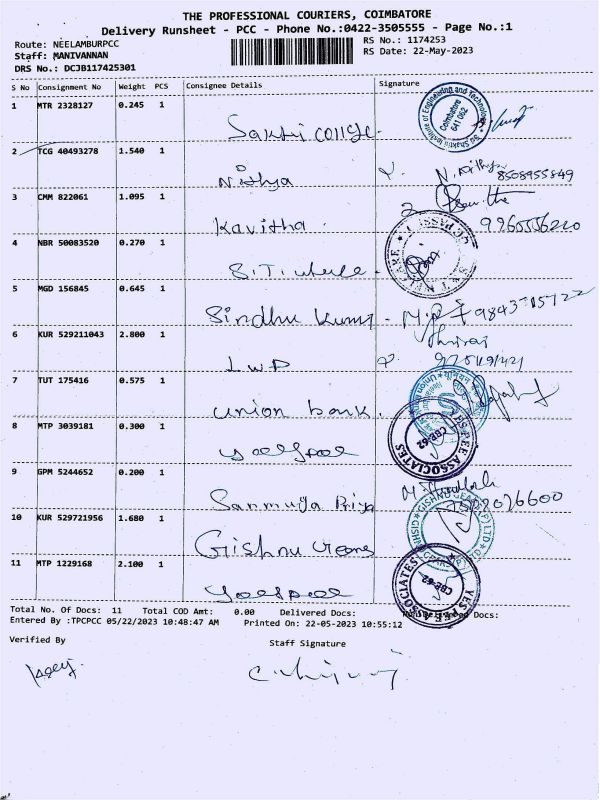 THE PROFESSIONAL COURIERS, COIMBATORE
Delivery Runsheet - PCC - Phone No.:0422-3505555 - Page No.:1
Route: NEELAMBURPCC
RS No.: 1174253
Staff: MANIVANNAN
RS Date: 22-May-2023
DRS No.: DCJB117425301
S No Consignment No Weight PCS Consignee Details Signature
1 MTR 2328127 0.245 1
Sakthi College.
Sri Shakthi Institute of Engineering and Technology
Coimbatore
641 062
2 TCG 40493278 1.540 1
Nithya
N. Nithya
8508955849
3 CMM 822061 1.095 1
Kavitha.
9960556220
4 NBR 50083520 0.270 1
5 MGD 156845 0.645 1
Sindhu Kumar
6 KUR 529211043 2.800 1
LWD
7 TUT 175416 0.575 1
union bank.
8 MTP 3039181 0.300 1
YES PEE ASSOCIATES
CBE-62
9 GPM 5244652 0.200 1
Sanmuga Priya
10 KUR 529721956 1.680 1
Grishnu Gears
GISHNU GEARS (P) LTD
11 MTP 1229168 2.100 1
YES PEE ASSOCIATES
CBE-62
Total No. Of Docs: 11 Total COD Amt: 0.00 Delivered Docs: Docs:
Entered By :TPCPCC 05/22/2023 10:48:47 AM Printed On: 22-05-2023 10:55:12
Verified By
Staff Signature